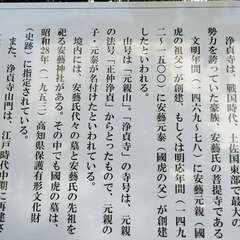 浄貞寺は、戦国時代、土佐国東部で最大の
勢力を誇っていた豪族、安藝氏の菩提寺である
文明年間(一四六九~八七)に安藝元親(國
虎の祖父)が創建、もしくは明応年間(一四九
二~一五〇〇)に安藝元泰(國虎の父)が創建
したといわれる。
山号は「元親山」、「浄貞寺」の寺号は、元親
の法号、「正仲浄貞」からとったもので、元親の
子・元泰が名付けたといわれている。
境内には、安藝氏代々の墓と安藝氏の先祖を
祀る安藝神社がある。その中でも國虎の墓は、
昭和28年(一九五三)高知県保護有形文化財
(史跡)に指定されている。
また、浄貞寺山門は、江戸時代中期に再建さ